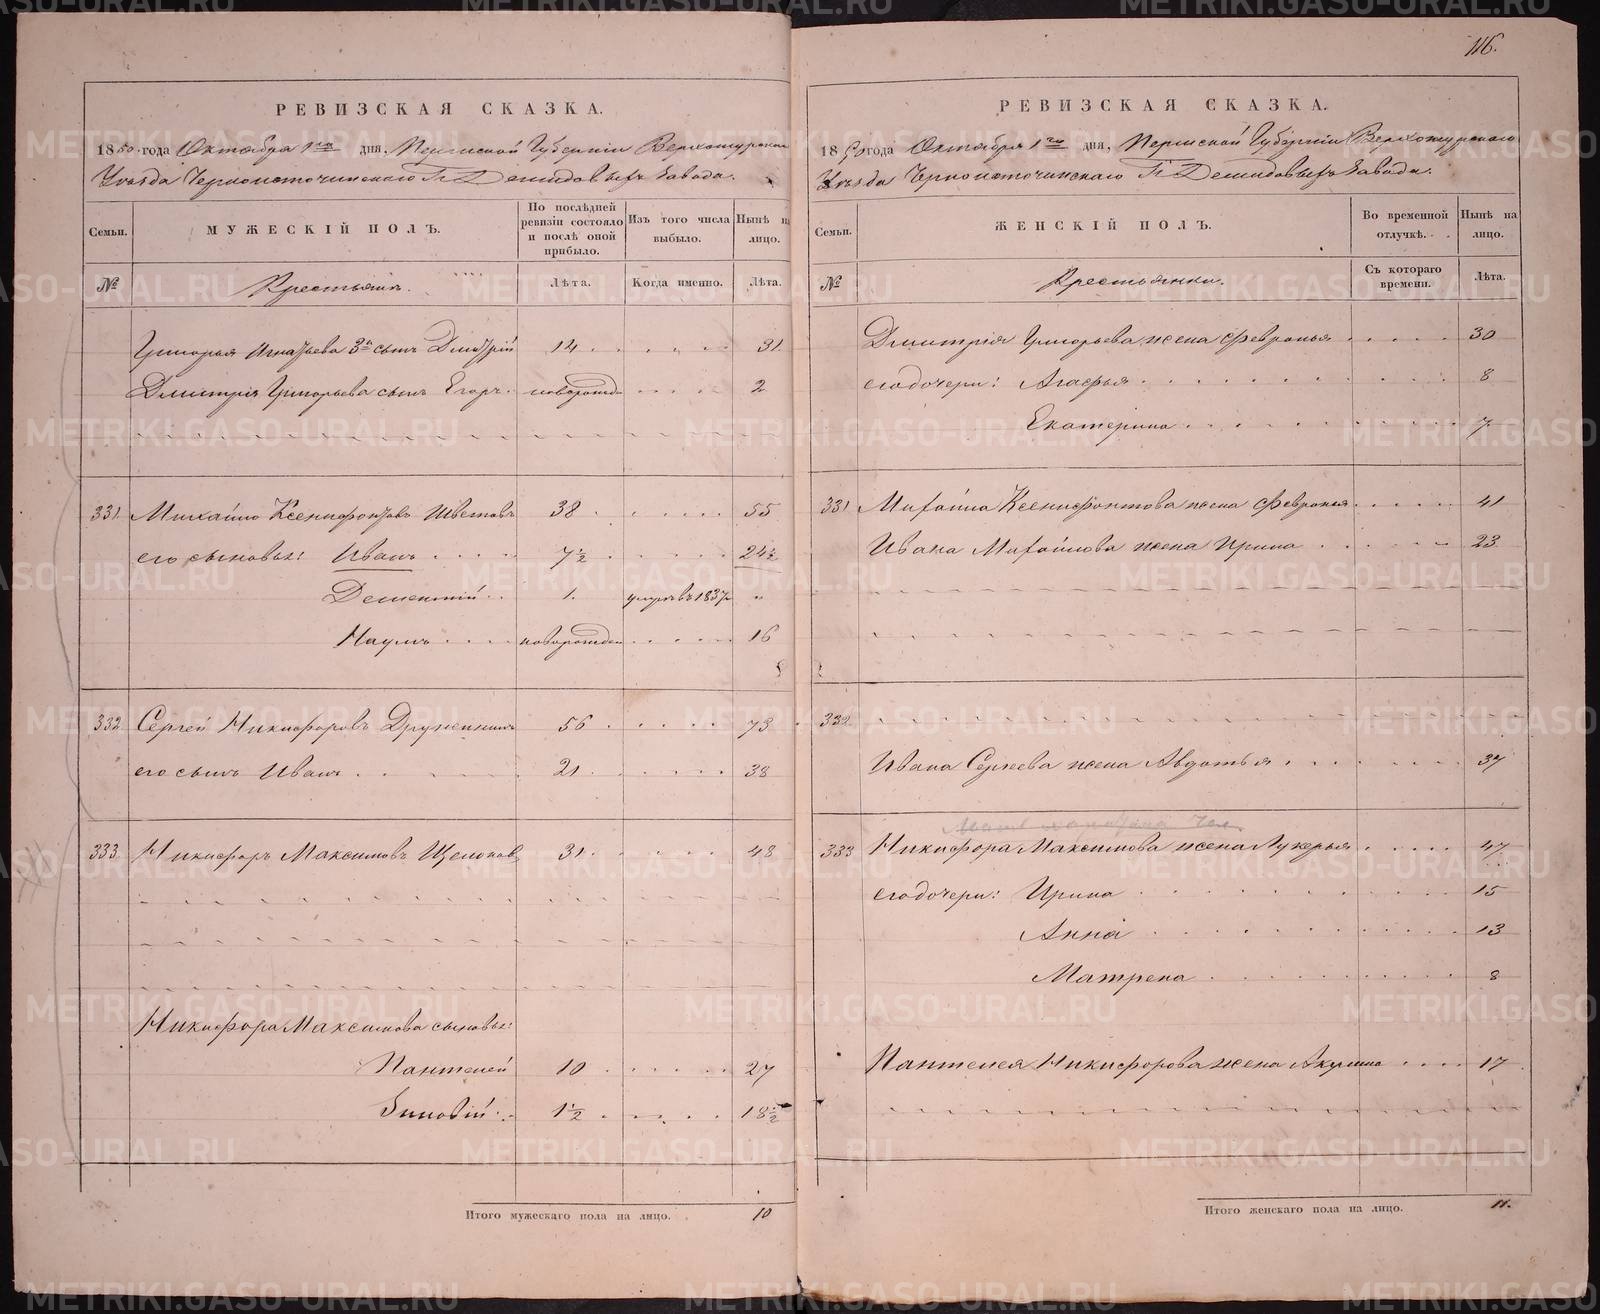 116.
РЕВИЗСКАЯ СКАЗКА.
1850 года Октября 1го дня, Пермской Губерніи Верхотурскаго
Уѣзда Черноисточинскаго Гг Демидовыхъ Завода.
Семьи.
МУЖЕСКІЙ ПОЛЪ.
По послѣдней ревизіи состояло и послѣ оной прибыло.
Изъ того числа выбыло.
Нынѣ на лицо.
№
Крестьянъ.
Лѣта.
Когда именно.
Лѣта.
Григорья Игнатьева 3й сынъ Дмитрій 14 31
Дмитрія Григорьева сынъ Егоръ новорожде 2
331 Михайло Ксенифонтовъ Швецовъ 38 55
его сыновья: Иванъ 7½ 24½
Дементій 1. умръ въ 1837 „
Наумъ новорожден 16
332 Сергей Никифоровъ Дружининъ 56 73
его сынъ Иванъ 21 38
333 Никифоръ Максимовъ Щелоковъ 31 48
Никифора Максимова сыновья:
Пантелей 10 27
Зиновій 1½ 18½
Итого мужескаго пола на лицо. 10
РЕВИЗСКАЯ СКАЗКА.
1850 года Октября 1го дня, Пермской Губерніи Верхотурскаго
Уѣзда Черноисточинскаго Гг Демидовыхъ Завода.
Семьи.
ЖЕНСКІЙ ПОЛЪ.
Во временной отлучкѣ.
Нынѣ на лицо.
№
Крестьянки.
Съ котораго времени.
Лѣта.
Дмитрія Григорьева жена Февронья 30
его дочери: Агафья 8
Екатерина 7
331 Михайла Ксенифонтова жена Февронья 41
Ивана Михайлова жена Ирина 23
332
Ивана Сергеева жена Авдотья 37
333 Никифора Максимова жена Лукерья 47
его дочери: Ирина 15
Анна 13
Матрена 8
Пантелея Никифорова жена Акулина 17
Итого женскаго пола на лицо. 11.
METRIKI.GASO-URAL.RU